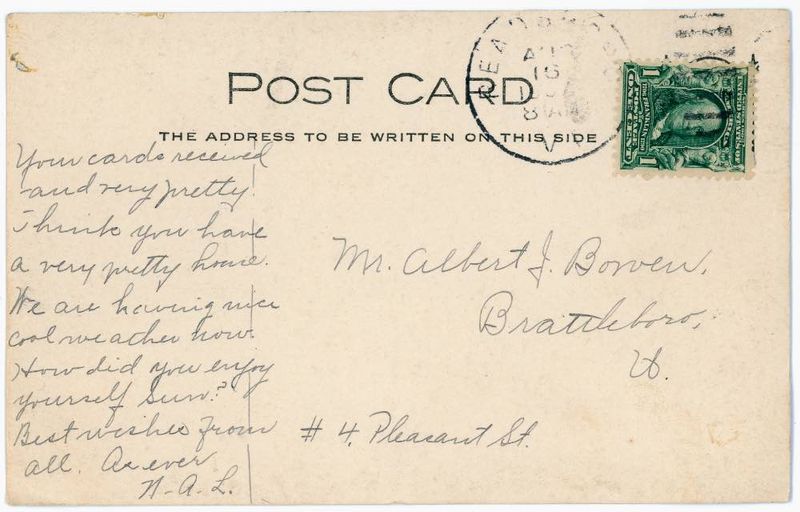 POST CARD
THE ADDRESS TO BE WRITTEN ON THIS SIDE
READSBORO
AU
16
8 A
V
1
ONE CENT
1
Your cards received
and very pretty.
Think you have
a very pretty home.
We are having nice
cool weather now.
How did you enjoy
yourself Sun.?
Best wishes from
all. As ever
N.A.L.
Mr. Albert J. Bowen,
Brattleboro,
Vt.
# 4. Pleasant St.